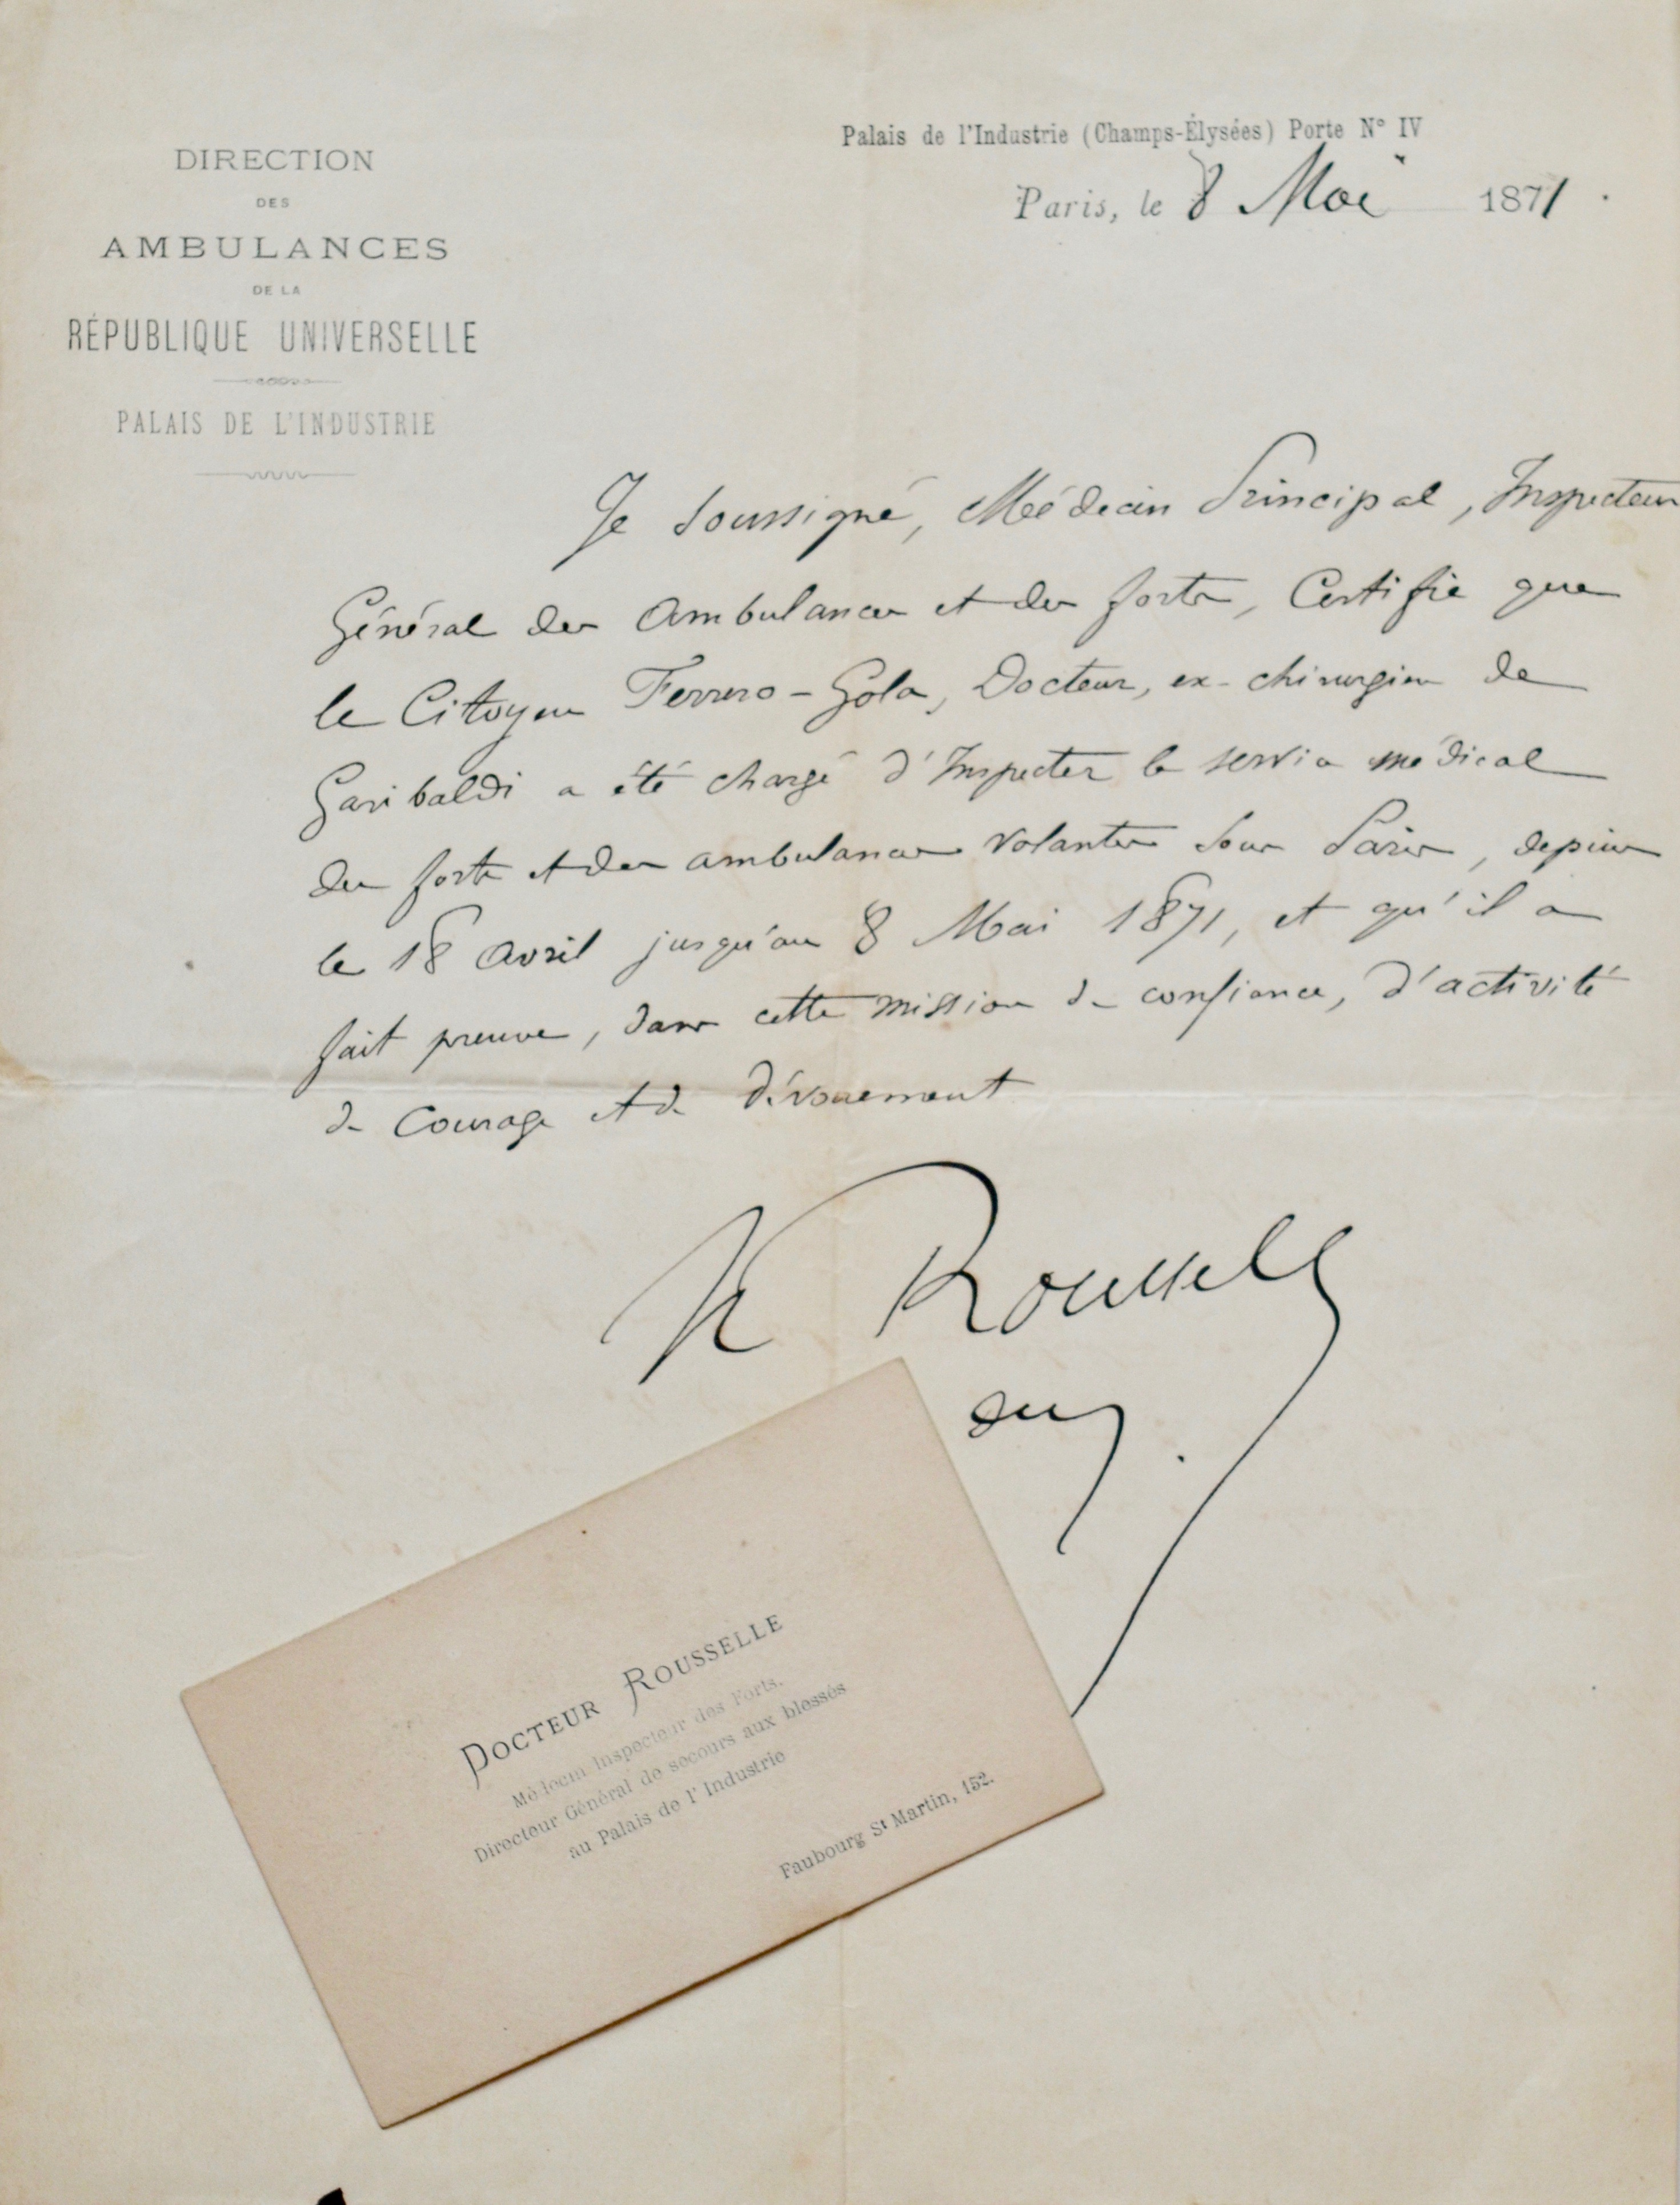 DIRECTION
DES
AMBULANCES
DE LA
RÉPUBLIQUE UNIVERSELLE
PALAIS DE L'INDUSTRIE
Palais de l'Industrie (Champs-Élysées) Porte N° IV
Paris, le 8 Mai 1871.
Je soussigné, Médecin Principal, Inspecteur
Général des Ambulances et des forts, Certifie que
le Citoyen Ferrero-Gola, Docteur, ex-chirurgien de
Garibaldi a été chargé d'Inspecter le service médical
des forts et des ambulances volantes sous Paris, depuis
le 18 avril jusqu'au 8 Mai 1871, et qu'il a
fait preuve, dans cette mission de confiance, d'activité
de Courage et de dévouement
Rousselle
DOCTEUR ROUSSELLE
Médecin Inspecteur des Forts.
Directeur Général de secours aux blessés
au Palais de l'Industrie
Faubourg St Martin, 152.